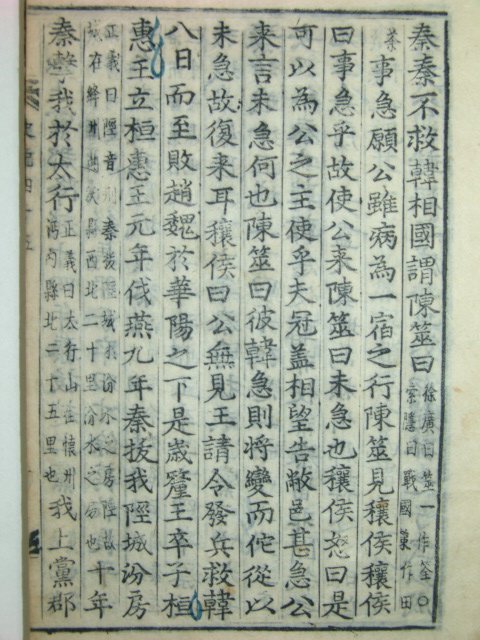 秦秦不救韓相國謂陳筮曰徐廣曰筮一作筌○索隱曰戰國策作田
茶事急願公雖病為一宿之行陳筮見穰侯穰侯
曰事急乎故使公来陳筮曰未急也穰侯怒曰是
可以為公之主使乎夫冠盖相望告敝邑甚急公
来言未急何也陳筮曰彼韓急則将變而佗從以
未急故復来耳穰侯曰公無見王請令發兵救韓
八日而至敗趙魏於華陽之下是歳釐王卒子桓
惠王立桓惠王元年伐燕九年秦拔我陘城汾房
正義曰陘音刑秦拔陘城於汾水之房陘故城在絳州曲沃縣西北二十里汾水之也十年
秦擊我於太行正義曰太行山在懷州河内縣北二十五里也我上黨郡